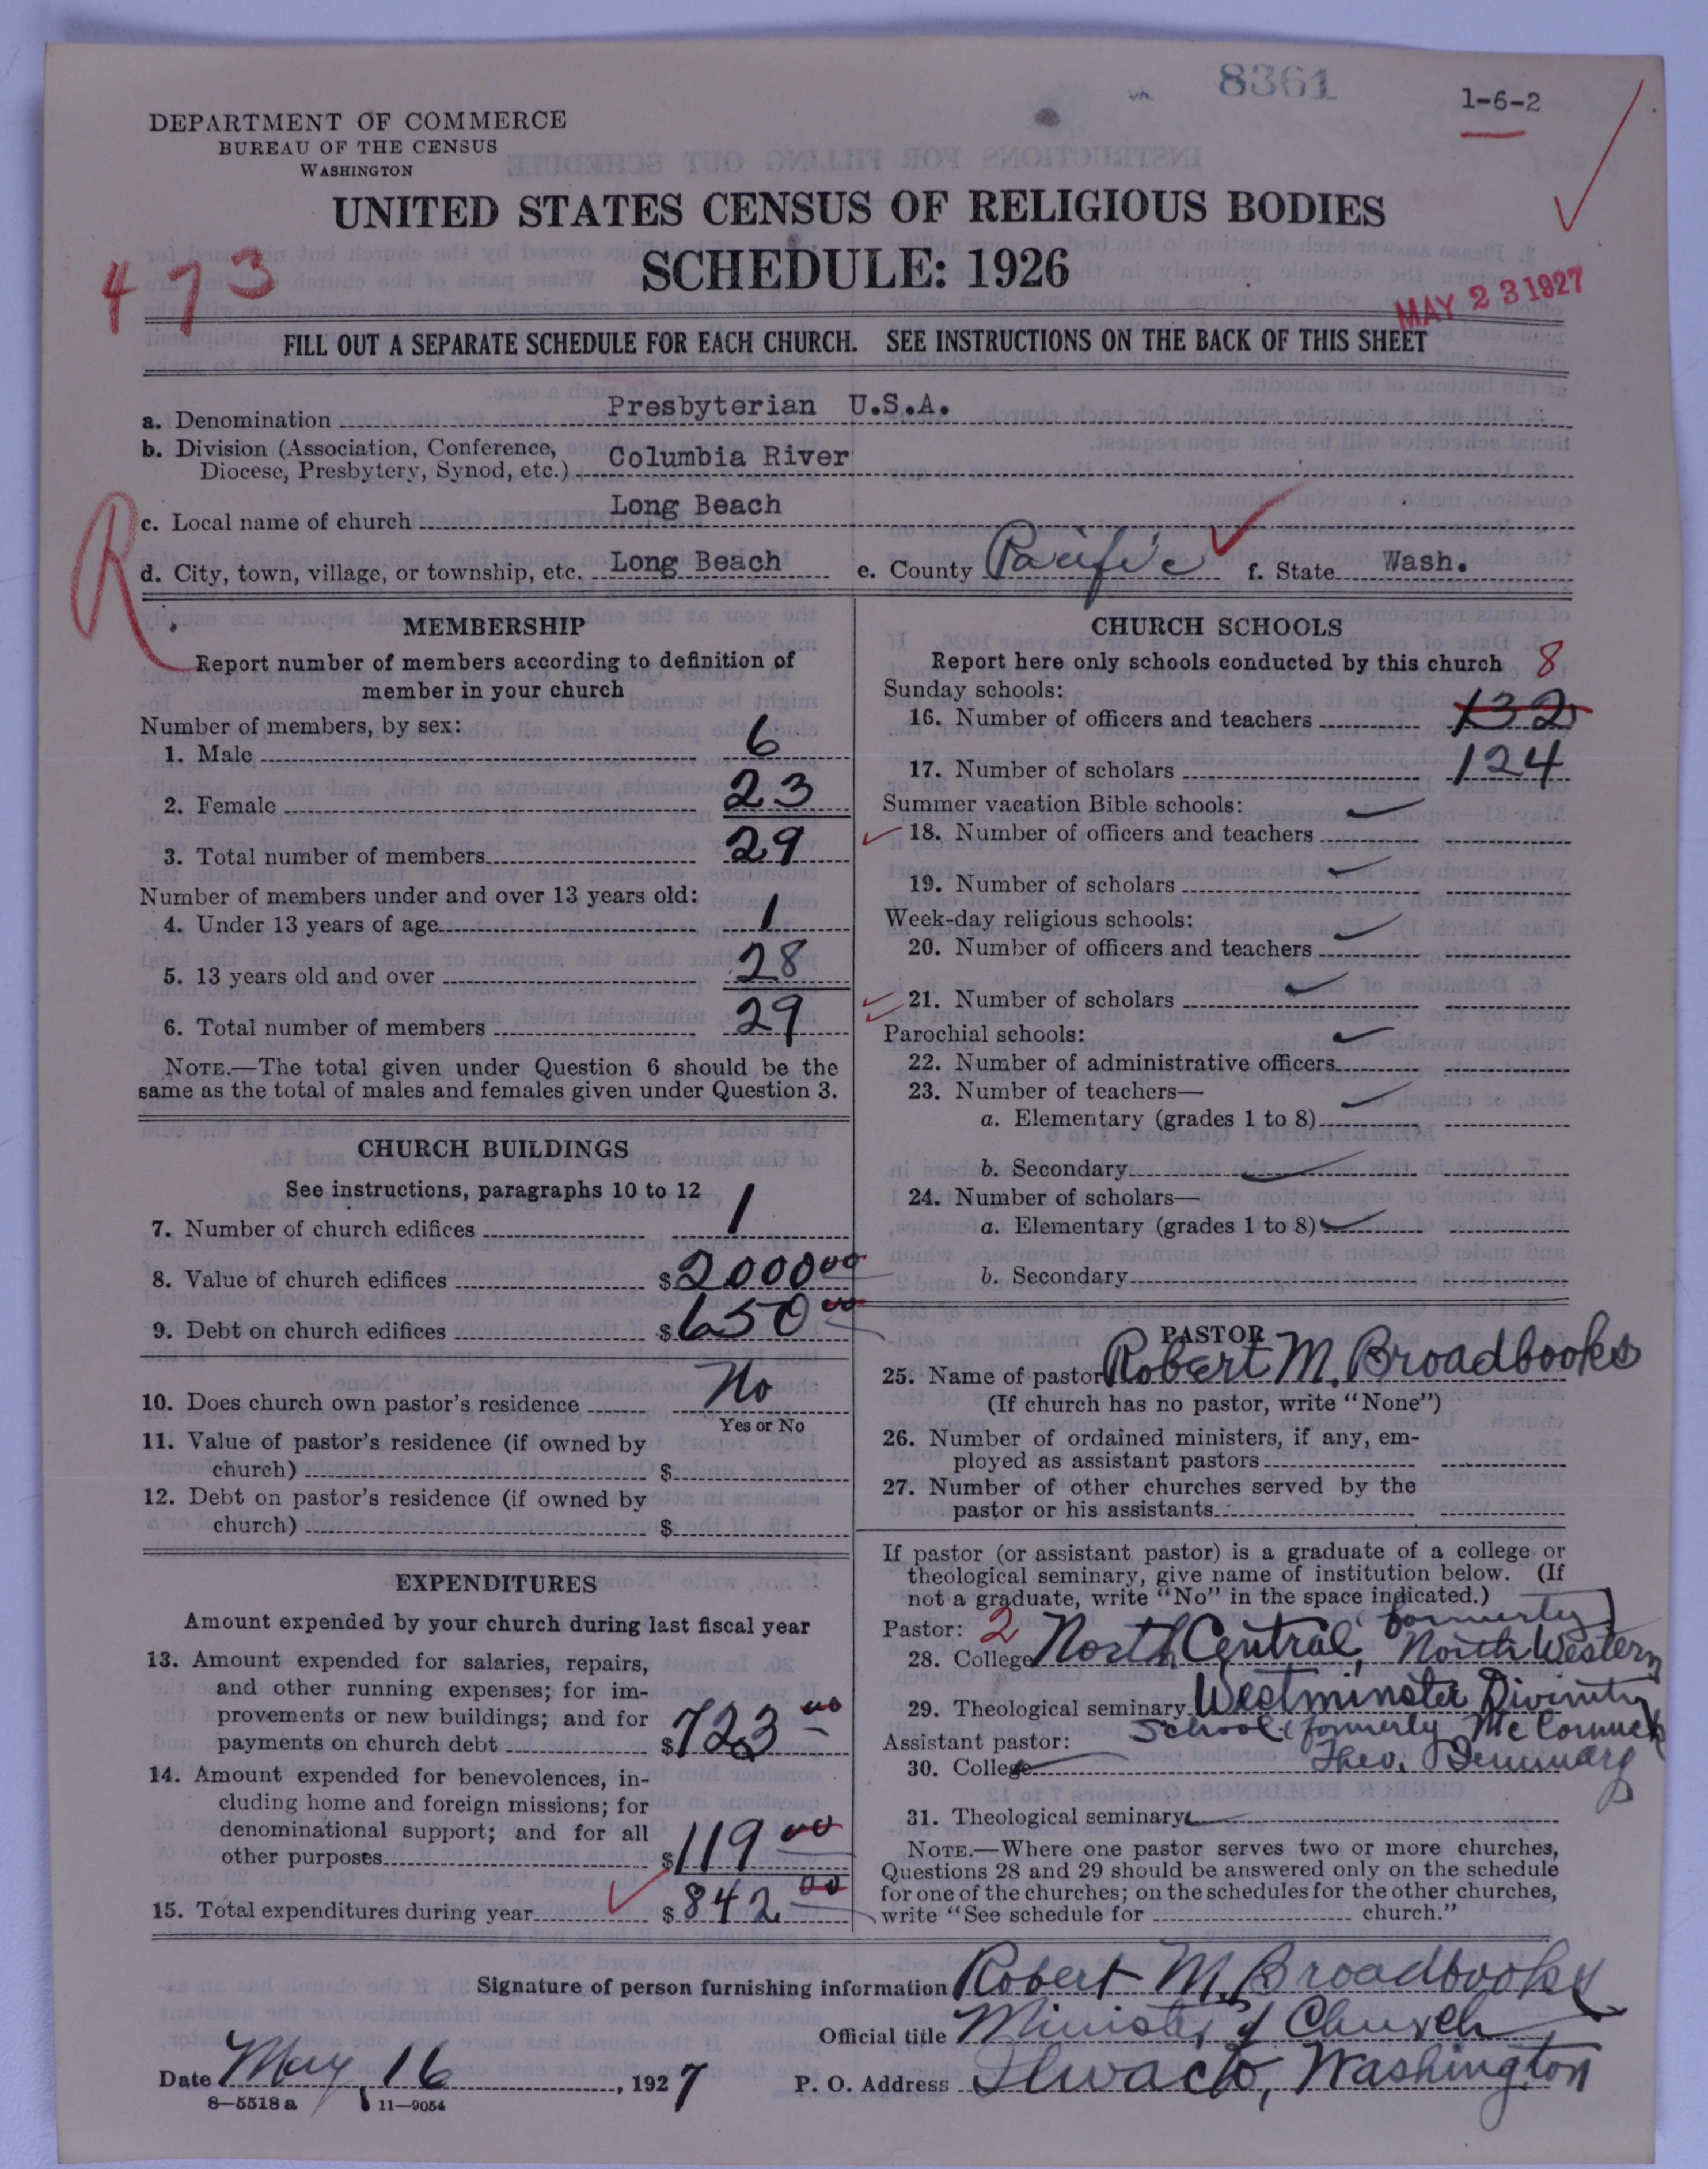 8361
1-6-2
DEPARTMENT OF COMMERCE
BUREAU OF THE CENSUS
WASHINGTON
UNITED STATES CENSUS OF RELIGIOUS BODIES
SCHEDULE: 1926
473
MAY 23 1927
FILL OUT A SEPARATE SCHEDULE FOR EACH CHURCH. SEE INSTRUCTIONS ON THE BACK OF THIS SHEET
a. Denomination Presbyterian U.S.A.
b. Division (Association, Conference,
Diocese, Presbytery, Synod, etc.) Columbia River
R
c. Local name of church Long Beach
d. City, town, village, or township, etc. Long Beach e. County Pacific f. State Wash.
MEMBERSHIP
Report number of members according to definition of
member in your church
Number of members, by sex:
1. Male 6
2. Female 23
3. Total number of members 29
Number of members under and over 13 years old:
4. Under 13 years of age 1
5. 13 years old and over 28
6. Total number of members 29
NOTE.—The total given under Question 6 should be the
same as the total of males and females given under Question 3.
CHURCH BUILDINGS
See instructions, paragraphs 10 to 12
7. Number of church edifices 1
8. Value of church edifices $2000 00
9. Debt on church edifices $650 00
10. Does church own pastor's residence No
Yes or No
11. Value of pastor's residence (if owned by
church) $
12. Debt on pastor's residence (if owned by
church) $
EXPENDITURES
Amount expended by your church during last fiscal year
13. Amount expended for salaries, repairs,
and other running expenses; for im-
provements or new buildings; and for
payments on church debt $723 00
14. Amount expended for benevolences, in-
cluding home and foreign missions; for
denominational support; and for all
other purposes $119 00
15. Total expenditures during year $842 00
CHURCH SCHOOLS
Report here only schools conducted by this church 8
Sunday schools:
16. Number of officers and teachers 132
17. Number of scholars 124
Summer vacation Bible schools:
18. Number of officers and teachers
19. Number of scholars
Week-day religious schools:
20. Number of officers and teachers
21. Number of scholars
Parochial schools:
22. Number of administrative officers
23. Number of teachers—
a. Elementary (grades 1 to 8)
b. Secondary
24. Number of scholars—
a. Elementary (grades 1 to 8)
b. Secondary
PASTOR
25. Name of pastor Robert M. Broadbooks
(If church has no pastor, write "None")
26. Number of ordained ministers, if any, em-
ployed as assistant pastors
27. Number of other churches served by the
pastor or his assistants
If pastor (or assistant pastor) is a graduate of a college or
theological seminary, give name of institution below. (If
not a graduate, write "No" in the space indicated.)
Pastor: 2 formerly
28. College North Central, North Western
29. Theological seminary Westminster Divinity
School (formerly McCormick
Assistant pastor:
30. College Theo. Seminary
31. Theological seminary
NOTE.—Where one pastor serves two or more churches,
Questions 28 and 29 should be answered only on the schedule
for one of the churches; on the schedules for the other churches,
write "See schedule for church."
Signature of person furnishing information Robert M. Broadbooks
Official title Minister of Church
Date May 16, 1927 P. O. Address Ilwaco, Washington
8—5518 a 11—9054